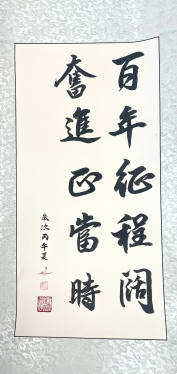 百年征程阔
奮進正當時
歲次丙午夏